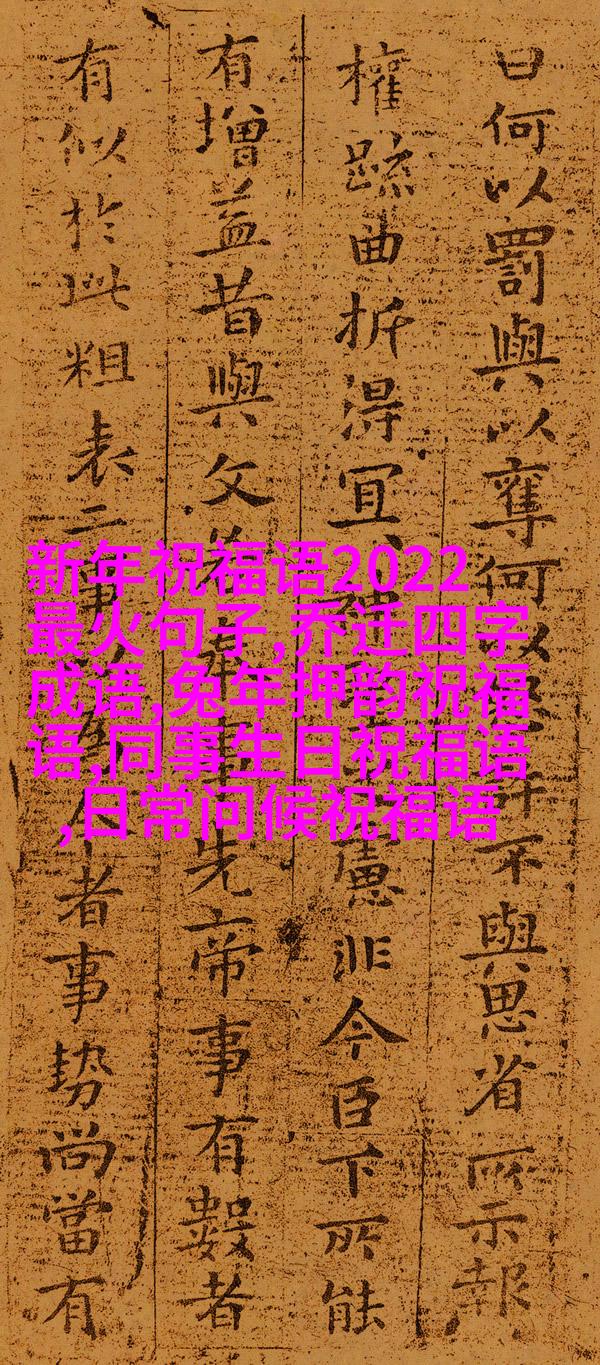 曰何以罰與以奪何以許不與思省所示報
權踈曲折得宜慮非今臣下所能
有增益昔與文若奉事先帝事有數者
有似於此粗表二事者事勢尚當有
新年祝福语2022
最火句子,乔迁四字
成语,兔年押韵祝福
语,同事生日祝福语
,日常问候祝福语